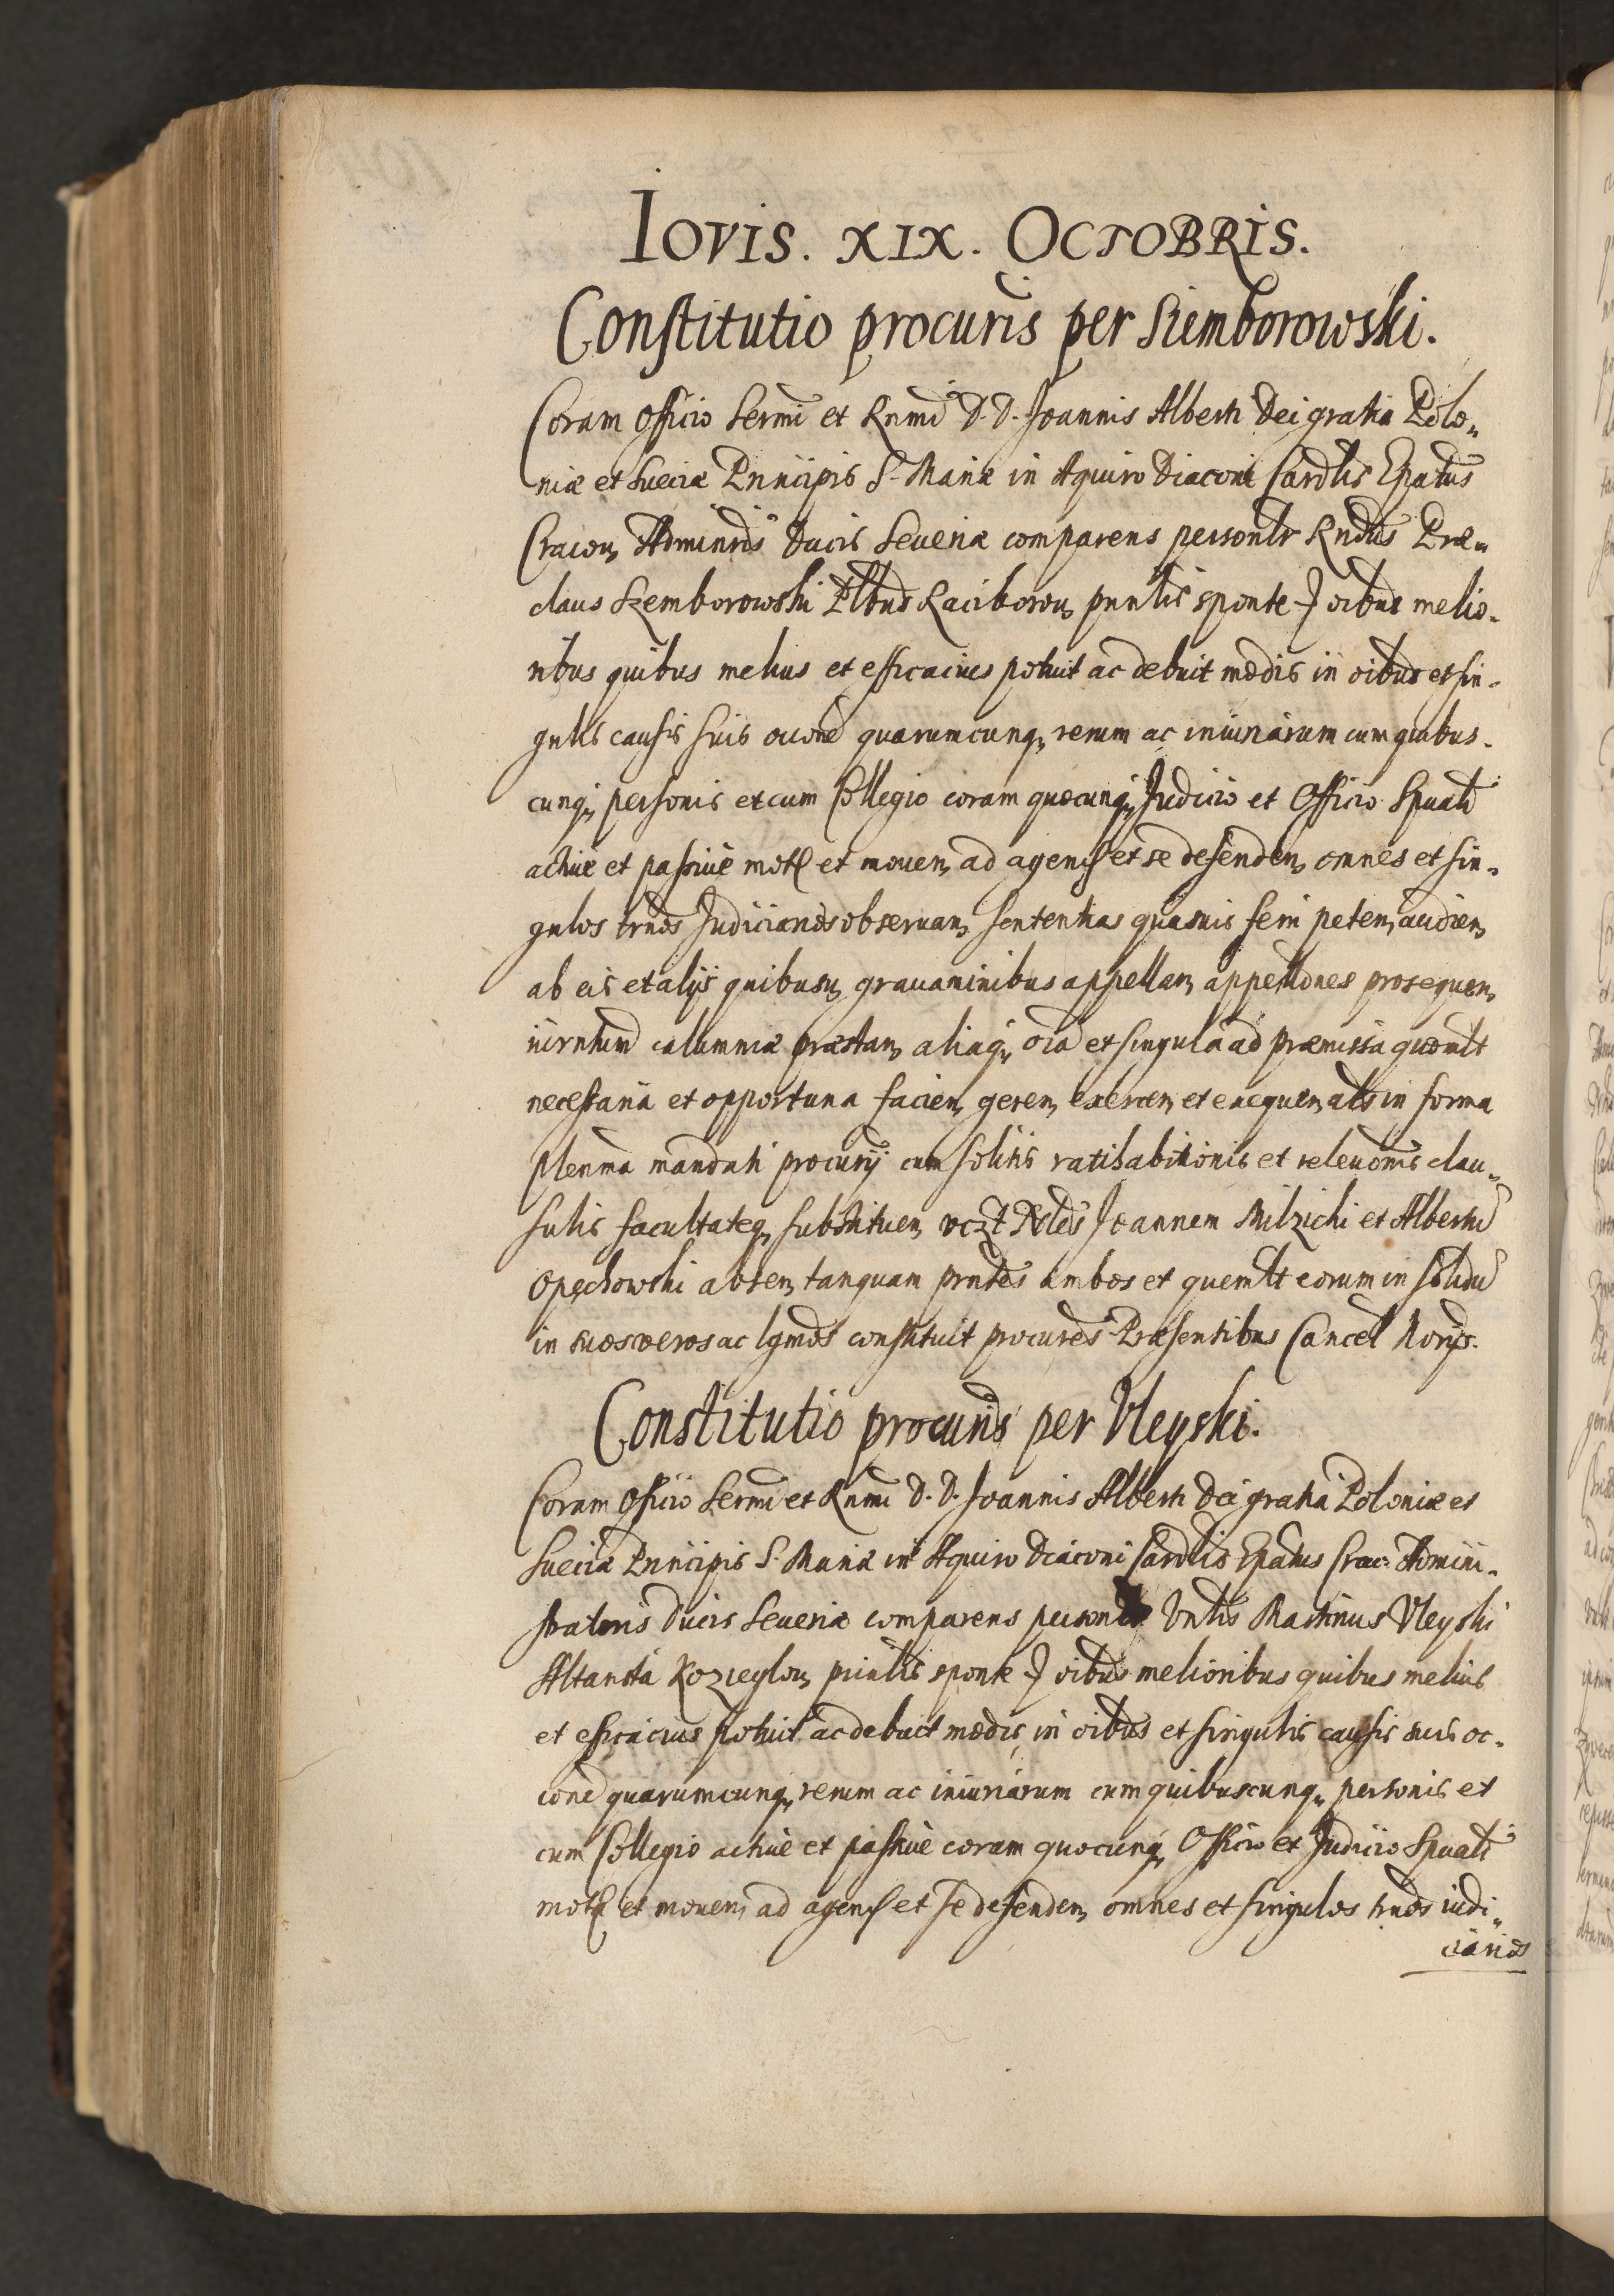 Iovis. XIX. Octobris.
Constitutio procuris per Siemborowski.
Coram Officio Sermi et Rnmi D. D. Joannis Alberti Dei gratia Polo„
niæ et Sueciæ Principis S. Mariæ in Aquiro Diaconi Cardlis Epatus
Cracou, Adminris Ducis Seueriæ comparens personlr Rndus Præ„
claus Szemborowski Plbus Raciborou, pnnlis sponte oibus melio-
ribus quibus melius et efficacius potuit ac debuit modis in oibus et sin-
gulis causis suis occone quarumcunq, rerum ac iniuriarum cum quibus-
cunq, personis et cum Collegio coram quocunq, Judicio et Officio Spuali
actiue et passiue mot et mouen, ad agend et se defenden, omnes et sin-
gulos trnos Judiciarios obseruan, sententias quasuis ferri peten, audien,
ab eis et alijs quibusu, grauaminibus appellan, appellones prosequen,
iurntum calumniæ præstan, aliaq, oia et singula ad præmissa quomlt
necessaria et opportuna facien, geren, exercen, et exequen, als in forma
plenma mandati procurij cum solitis ratihabitionis et releuonis clau„
sulis facultateq, substituen, vczt Nbles Joannem Milzichi et Albertu
Opęchowski absen, tanquam prntes ambos et quemlt eorum in solidu
in suos veros ac lgmos constituit procures Præsentibus Cancel Norijs.
Constitutio procuris per Vleyski.
Coram Officio Sermi et Rnmi D. D. Joannis Alberti Dei gratia Poloniæ et
Sueciæ Principis S. Mariæ in Aquiro Diaconi Cardlis Epatus Crac: Admini-
stratoris Ducis Seueriæ comparens personlr Vnlis Martinus Vleyski
Altarista Kozieglou, prinlis sponte oibus melioribus quibus melius
et efficacius potuit ac debuit modis in oibus et singulis causis suis oc-
cone quarumcunq, rerum ac iniuriarum cum quibuscunq, personis et
cum Collegio actiue et passiue coram quocunq, Officio et Judicio Spuali
mot et mouen, ad agend et se defenden, omnes et singulos trnos iudi„
ciarios